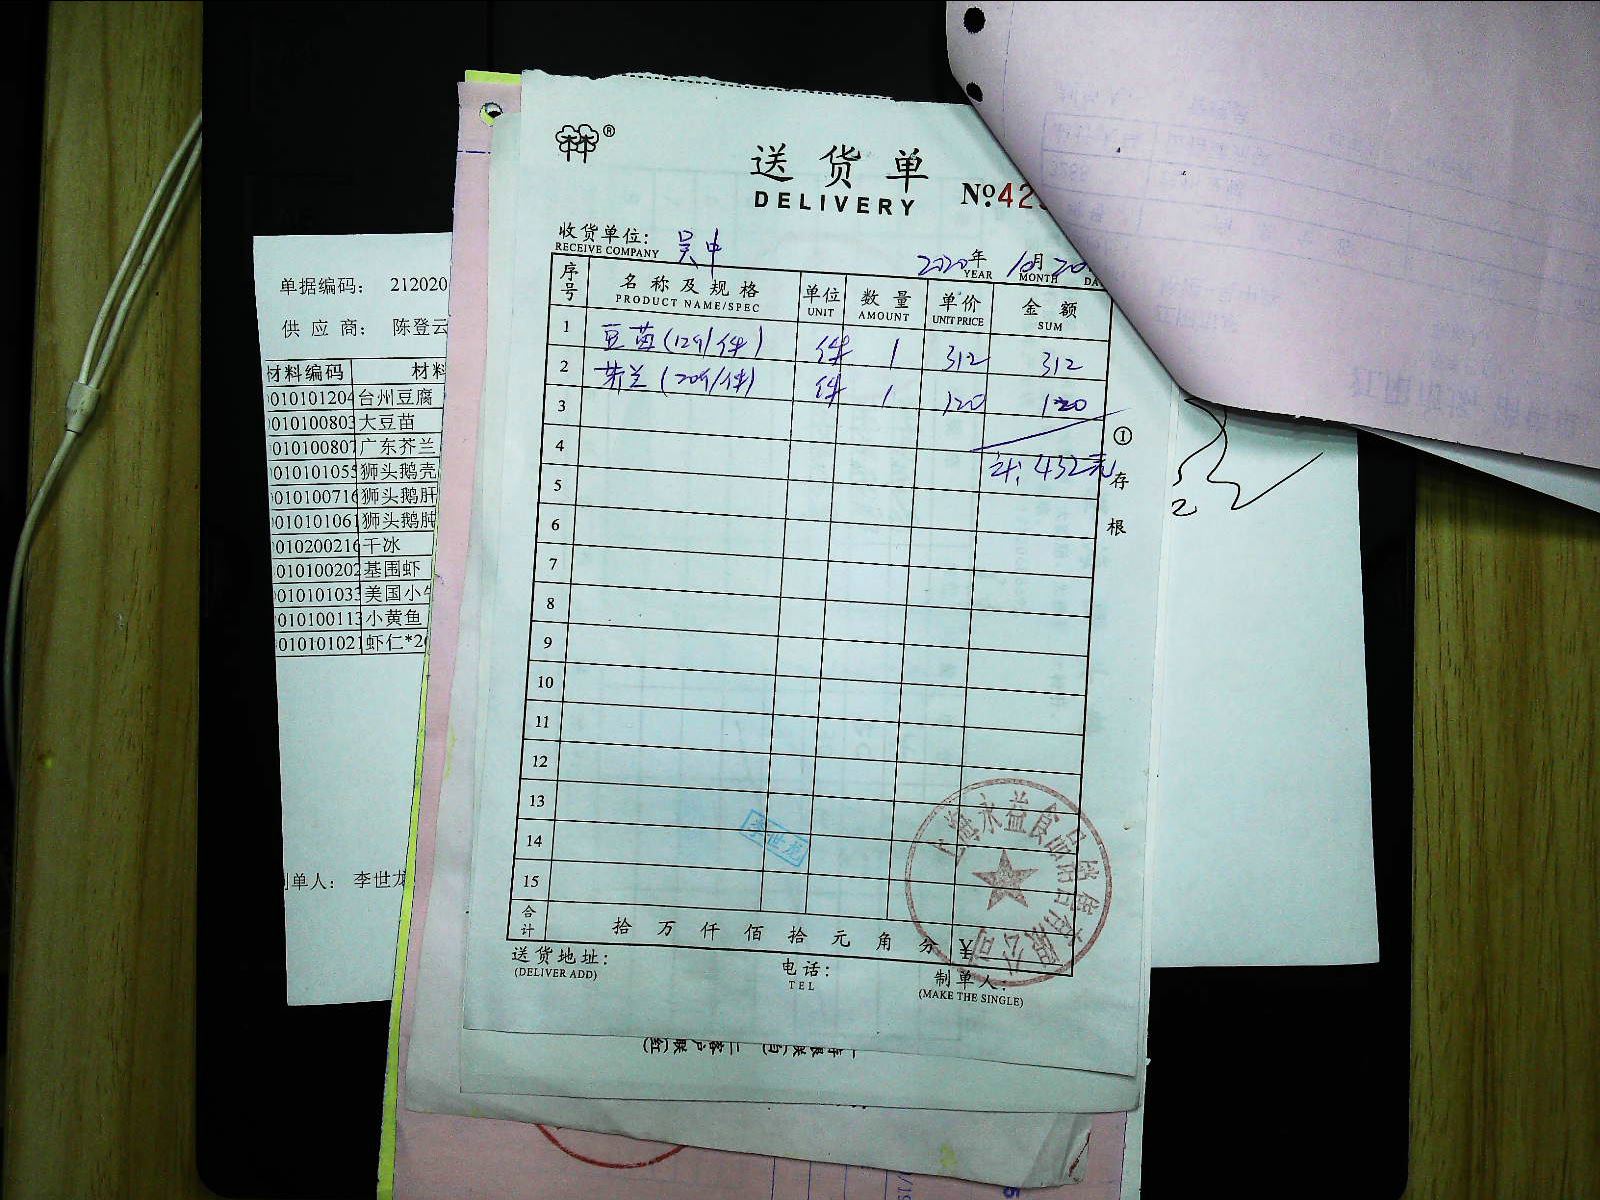 林®
送货单
DELIVERY
№42
收货单位: 吴中
RECEIVE COMPANY
2020年 10月20
YEAR MONTH DA
序号 名称及规格 单位 数量 单价 金额
PRODUCT NAME/SPEC UNIT AMOUNT UNIT PRICE SUM
1 豆苗(12斤/件) 件 1 312 312
2 芥兰(20斤/件) 件 1 120 120
3
4 计: 432元
5
6
7
8
9
10
11
12
13
14
15
合计 拾 万 仟 佰 拾 元 角 分 ¥
送货地址:
(DELIVER ADD)
电话:
TEL
制单人:
(MAKE THE SINGLE)
① 存根
李世龙
上海永益食品销售有限公司
单据编码: 212020
供应商: 陈登云
材料编码 材料
010101204 台州豆腐
010100803 大豆苗
010100807 广东芥兰
010101055 狮头鹅壳
010100716 狮头鹅肝
010101061 狮头鹅肫
010200216 干冰
010100202 基围虾
010101033 美国小牛
010100113 小黄鱼
010101021 虾仁*2
制单人: 李世龙